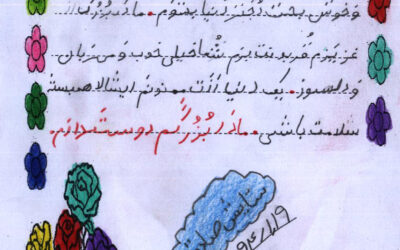 و خوش بخت دختر دنیا بشوم .. مادربزرگ
عزیزم قربدنت برم شما خیلی خوب و مهربان
و دلسوز .. یک دنیا ازت ممنونم ایشالا همیشه
سلامت باشی .. مادربزرگم دوستت دارم.
ستایش